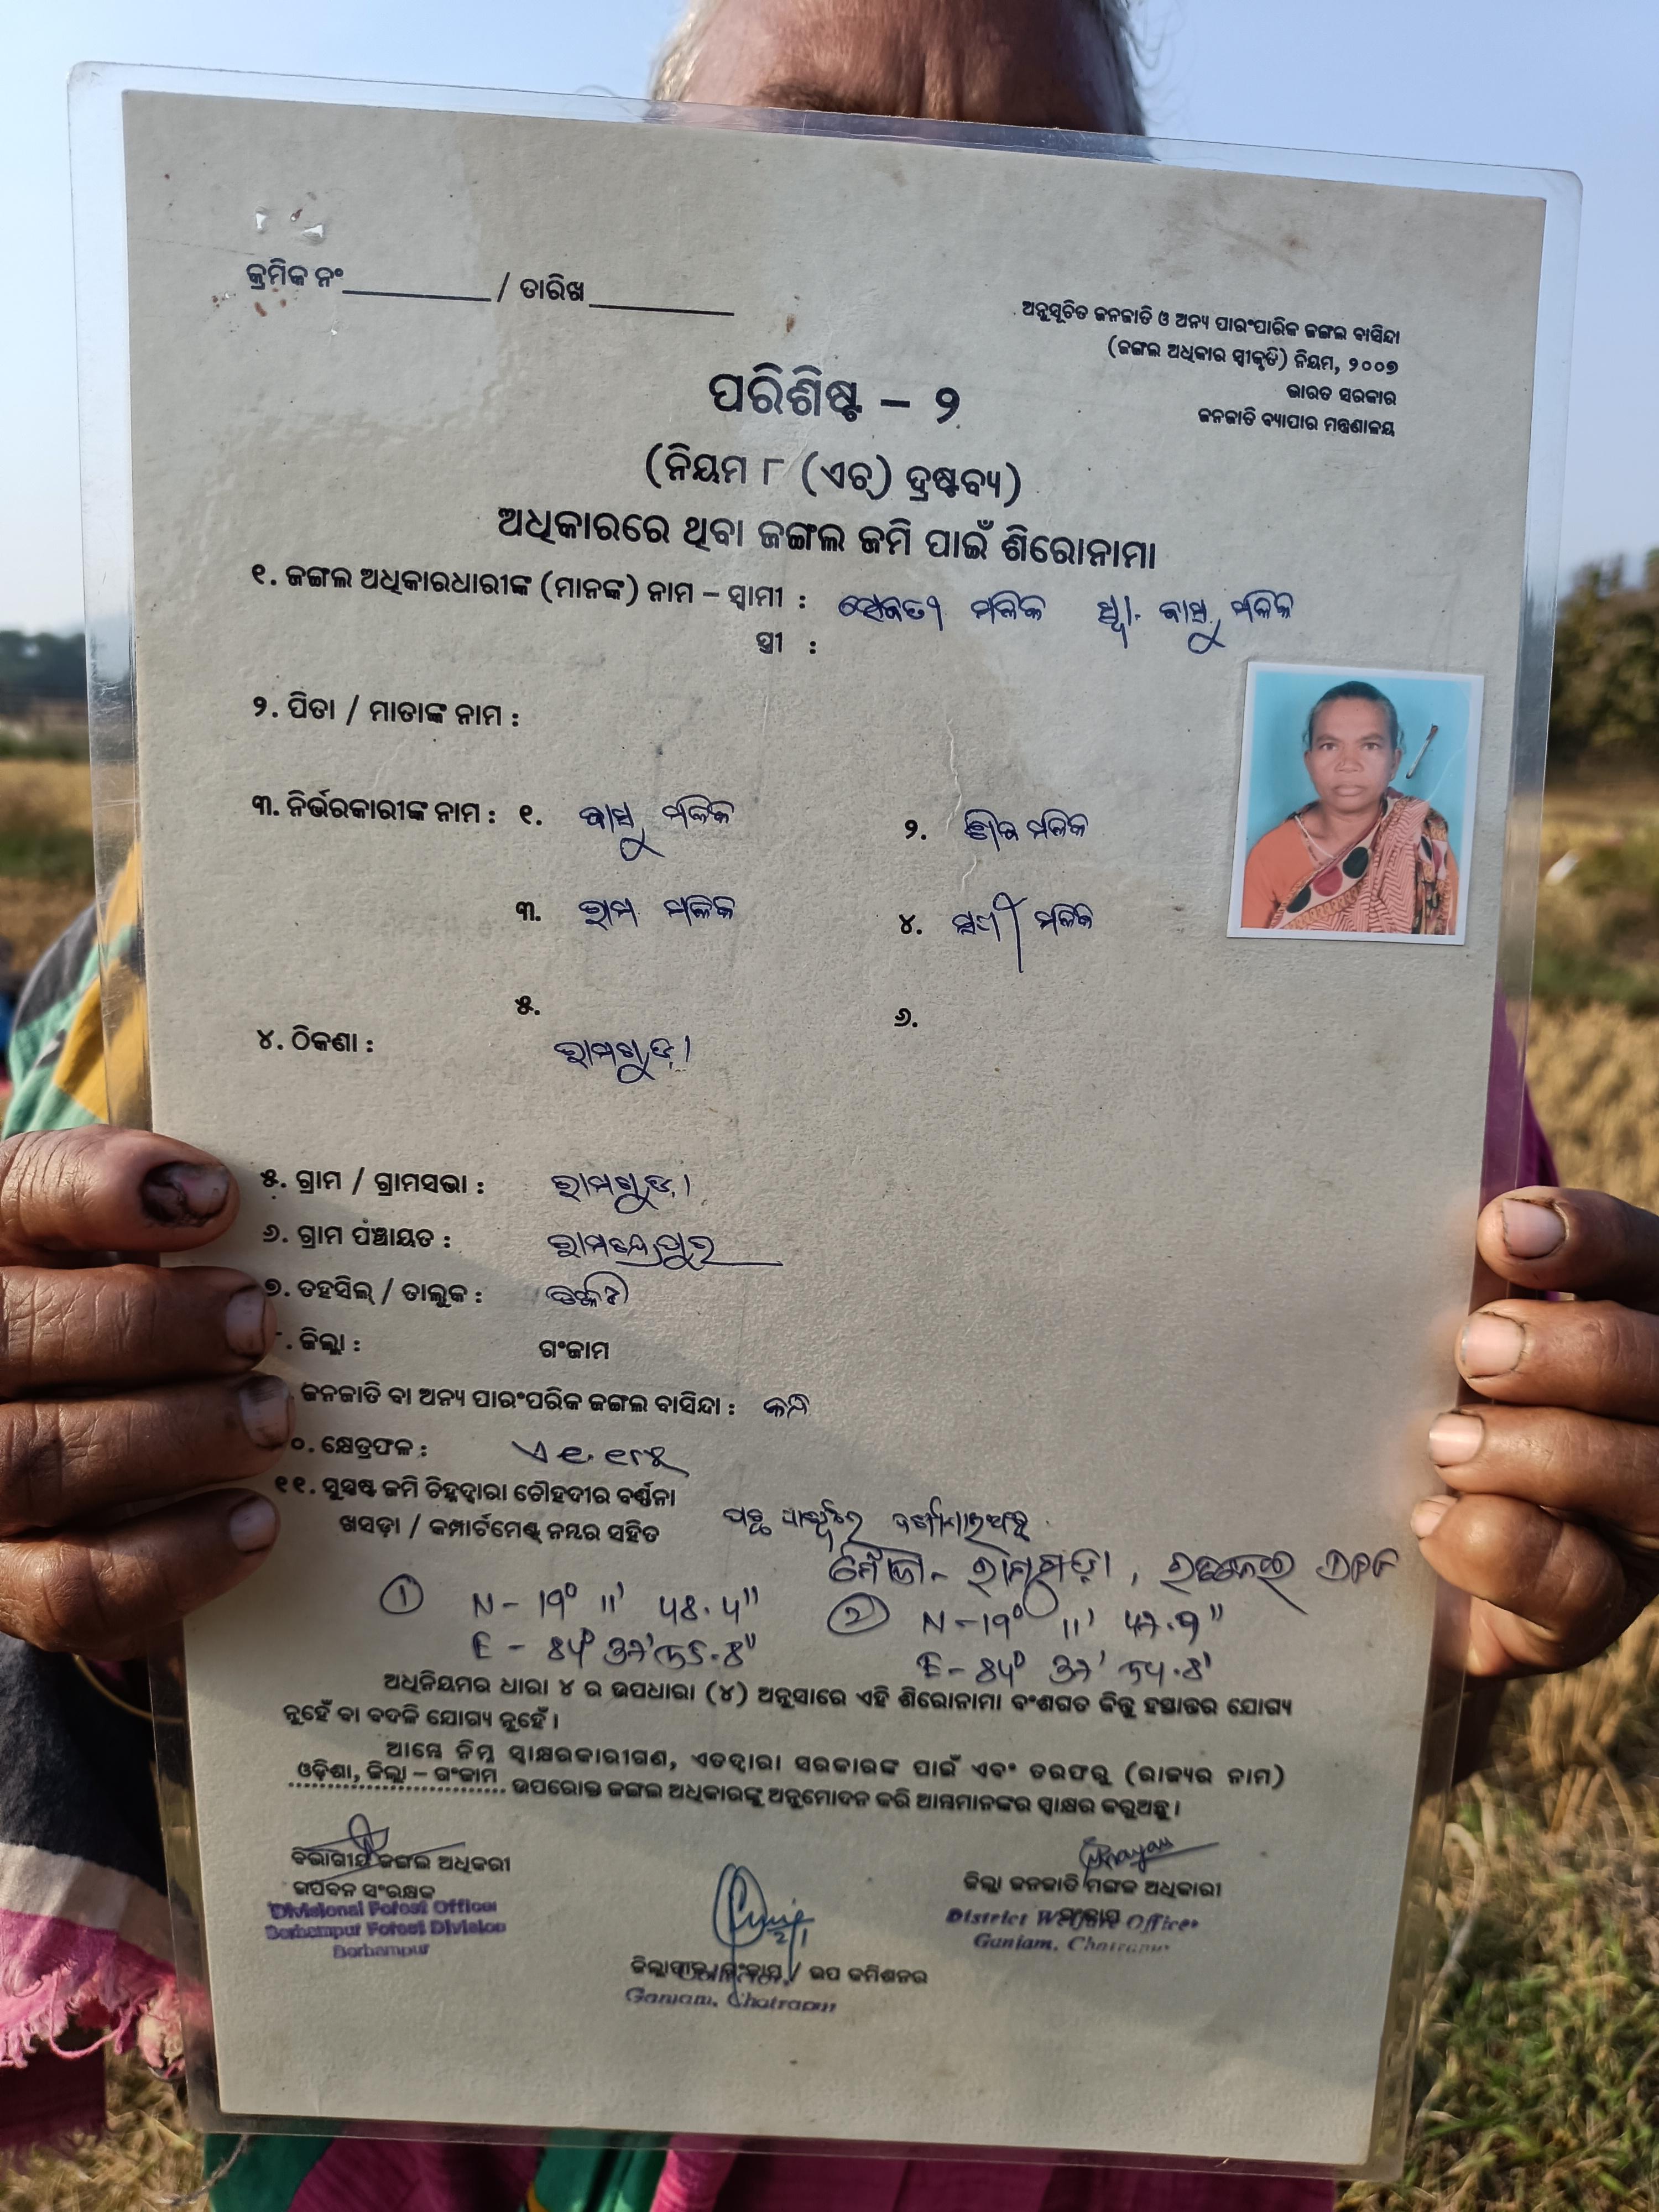 କ୍ରମିକ ନଂ__________ / ତାରିଖ__________
ଅନୁସୂଚିତ ଜନଜାତି ଓ ଅନ୍ୟ ପାରଂପାରିକ ଜଙ୍ଗଲ ବାସିନ୍ଦା
(ଜଙ୍ଗଲ ଅଧିକାର ସ୍ୱୀକୃତି) ନିୟମ, ୨୦୦୭
ଭାରତ ସରକାର
ଜନଜାତି ବ୍ୟାପାର ମନ୍ତ୍ରଣାଳୟ
ପରିଶିଷ୍ଟ – ୨
(ନିୟମ ୮ (ଏଚ୍) ଦ୍ରଷ୍ଟବ୍ୟ)
ଅଧିକାରରେ ଥିବା ଜଙ୍ଗଲ ଜମି ପାଇଁ ଶିରୋନାମା
୧. ଜଙ୍ଗଲ ଅଧିକାରଧାରୀଙ୍କ (ମାନଙ୍କ) ନାମ – ସ୍ୱାମୀ : ମଳିକ ସ୍ୱା. ବାସୁ ମଳିକ
ସ୍ତ୍ରୀ :
୨. ପିତା / ମାତାଙ୍କ ନାମ :
୩. ନିର୍ଭରକାରୀଙ୍କ ନାମ : ୧. ବାସୁ ମଳିକ ୨. ମଳିକ
୩. ରାମ ମଳିକ ୪. ମଳିକ
୫. ୬.
୪. ଠିକଣା : ରାମଗୁଡ଼ା
୫. ଗ୍ରାମ / ଗ୍ରାମସଭା : ରାମଗୁଡ଼ା
୬. ଗ୍ରାମ ପଞ୍ଚାୟତ : ରାମଚନ୍ଦ୍ରପୁର
୭. ତହସିଲ୍ / ତାଲୁକ :
. ଜିଲ୍ଲା : ଗଂଜାମ
. ଜନଜାତି ବା ଅନ୍ୟ ପାରଂପରିକ ଜଙ୍ଗଲ ବାସିନ୍ଦା : କନ୍ଧ
୦. କ୍ଷେତ୍ରଫଳ : ଏ ୧.୧୮୫
୧୧. ସୁସ୍ପଷ୍ଟ ଜମି ଚିହ୍ନଦ୍ୱାରା ଚୌହଦୀର ବର୍ଣ୍ଣନା
ଖସଡ଼ା / କମ୍ପାର୍ଟମେଣ୍ଟ ନମ୍ବର ସହିତ ପଛ ପାର୍ଶ୍ୱରେ ଦର୍ଶାଯାଇଅଛି
ମୌଜା- ରାମଗୁଡ଼ା,
① N - 19° 11' 48.4" ② N - 19° 11' 47.9"
E - 84° 37' 55.8" E - 84° 37' 54.8"
ଅଧିନିୟମର ଧାରା ୪ ର ଉପଧାରା (୪) ଅନୁସାରେ ଏହି ଶିରୋନାମା ବଂଶଗତ କିନ୍ତୁ ହସ୍ତାନ୍ତର ଯୋଗ୍ୟ
ନୁହେଁ ବା ବଦଳି ଯୋଗ୍ୟ ନୁହେଁ ।
ଆମ୍ଭେ ନିମ୍ନ ସ୍ୱାକ୍ଷରକାରୀଗଣ, ଏତଦ୍ୱାରା ସରକାରଙ୍କ ପାଇଁ ଏବଂ ତରଫରୁ (ରାଜ୍ୟର ନାମ)
ଓଡ଼ିଶା, ଜିଲ୍ଲା – ଗଂଜାମ ଉପରୋକ୍ତ ଜଙ୍ଗଲ ଅଧିକାରଙ୍କୁ ଅନୁମୋଦନ କରି ଆମ୍ଭମାନଙ୍କର ସ୍ୱାକ୍ଷର କରୁଅଛୁ ।
ବିଭାଗୀୟ ଜଙ୍ଗଲ ଅଧିକରୀ
ଉପବନ ସଂରକ୍ଷକ
Divisional Forest Officer
Berhampur Forest Division
Berhampur
ଜିଲ୍ଲାପାଳ, ଗଂଜାମ / ଉପ କମିଶନର
Ganjam, Chatrapur
ଜିଲ୍ଲା ଜନଜାତି ମଙ୍ଗଳ ଅଧିକାରୀ
ଗଂଜାମ
District Welfare Officer
Ganjam, Chatrapur